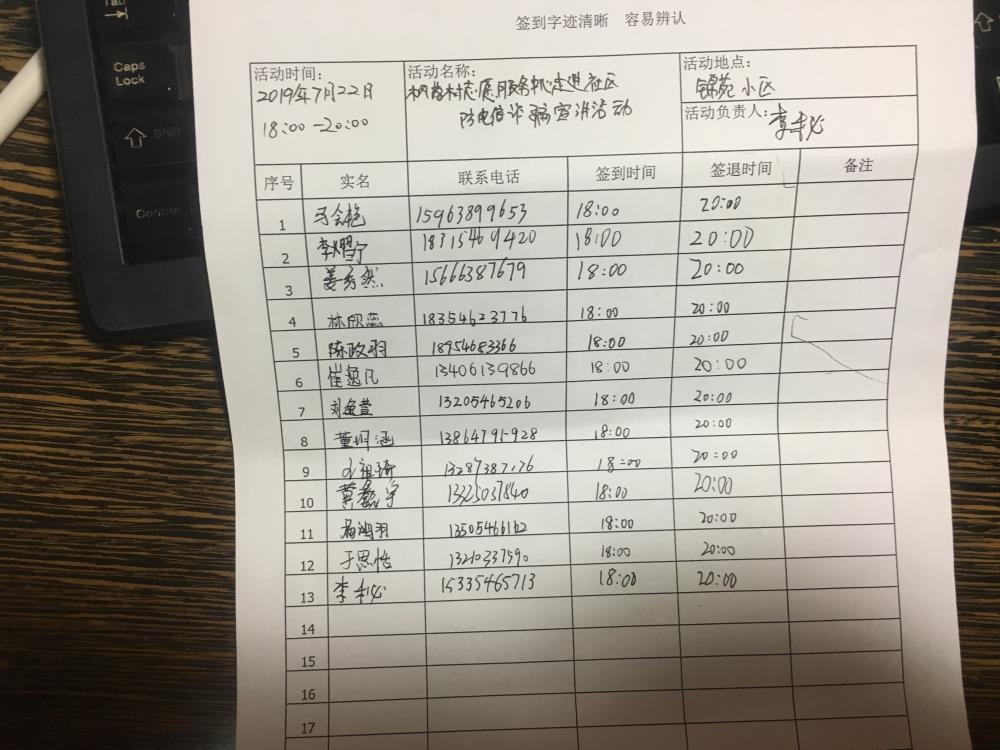 Tab
Caps Lock
Shift
Control
签到字迹清晰 容易辨认
活动时间:
2019年7月22日
18:00-20:00
活动名称:
志愿服务队走进社区
防电信诈骗宣讲活动
活动地点:
锦苑小区
活动负责人:李利必
序号 实名 联系电话 签到时间 签退时间 备注
1 15963899653 18:00 20:00
2 18315469420 18:00 20:00
3 姜秀然 15666387679 18:00 20:00
4 林欣蕊 18354623776 18:00 20:00
5 陈政羽 18954683366 18:00 20:00
6 崔逸凡 13406139866 18:00 20:00
7 刘奕萱 13205465206 18:00 20:00
8 董玥涵 13864791928 18:00 20:00
9 祖琦 18:00 20:00
10 黄鑫宇 13325037840 18:00 20:00
11 杨鸿羽 13505466162 18:00 20:00
12 于思恬 18:00 20:00
13 李利必 15335465713 18:00 20:00
14
15
16
17